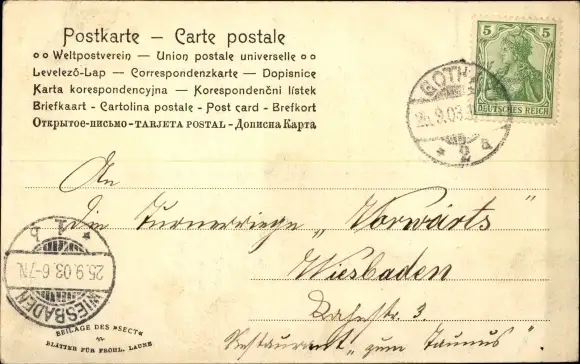 Postkarte – Carte postale
Weltpostverein — Union postale universelle
Levelező-Lap — Correspondenzkarte — Dopisnice
Karta korespondencyjna — Korespondenční lístek
Briefkaart - Cartolina postale - Post card - Brefkort
Открытое-письмо - TARJETA POSTAL - Дописна Карта
5 5
DEUTSCHES REICH
GOTHA
9.03
* 2 a
An
die Turnerriege „Vorwärts"
Wiesbaden
3.
Restaurant „zum Taunus".
WIESBADEN
25.9.03.6-7N.
* 1 b
BEILAGE DES »SECT«
BLÄTTER FÜR FRÖHL. LAUNE